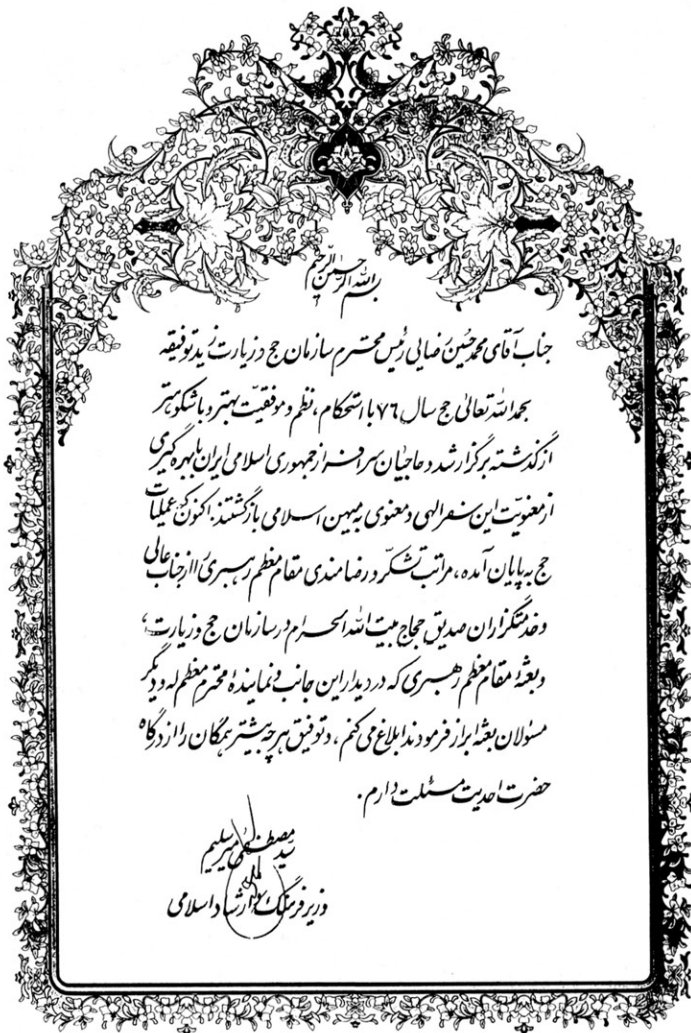 بسم الله الرحمن الرحیم
جناب آقای محمد حسین رضایی رئیس محترم سازمان حج و زیارت زید توفیقه
بحمد الله تعالی حج سال ۷۶ با استحکام، نظم و موفقیت بهتر و باشکوهتر
از گذشته برگزار شد و حاجیان سرافراز جمهوری اسلامی ایران با بهره گیری
از معنویت این سفر الهی و معنوی به میهن اسلامی بازگشتند. اکنون که عملیات
حج به پایان آمده، مراتب تشکر و رضامندی مقام معظم رهبری را از جناب عالی
و خدمتگزاران صدیق حجاج بیت الله الحرام در سازمان حج و زیارت،
و بعثه مقام معظم رهبری که در دیدار این جانب و نماینده محترم معظم له و دیگر
مسئولان بعثه ابراز فرمودند ابلاغ می کنم، و توفیق هر چه بیشتر همگان را از درگاه
حضرت احدیت مسئلت دارم.
سید مصطفی میرسلیم
وزیر فرهنگ و ارشاد اسلامی